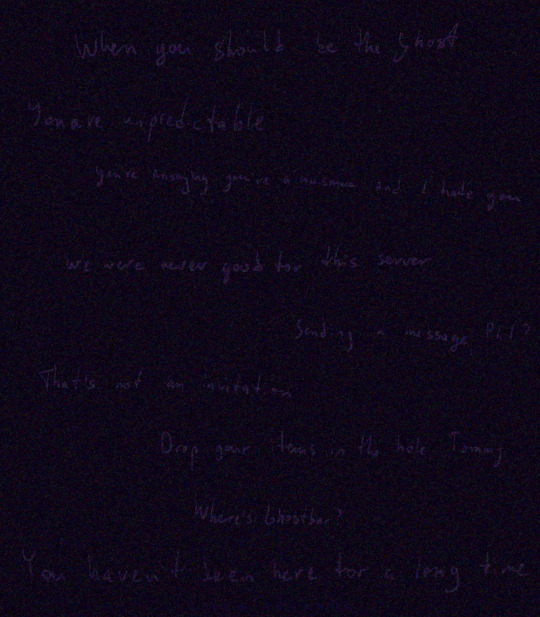 When you should be the ghost
You are unpredictable
you're annoying you're a nuisance and I hate you
we were never good for this server
Sending a message Phil?
That's not an invitation
Drop your items in the hole Tommy
Where's Ghostbur?
You haven't been here for a long time